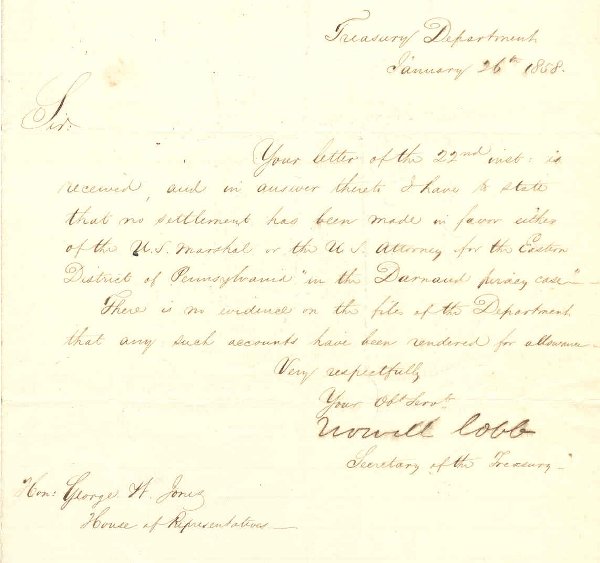 Treasury Department
January 26th 1858.
Sir.
Your letter of the 22nd inst: is
received, and in answer thereto I have to state
that no settlement has been made in favor either
of the U.S. Marshal or the U S. Attorney for the Eastern
District of Pennsylvania "in the Darnaud piracy case"—
There is no evidence on the files of the Department
that any such accounts have been rendered for allowance—
Very respectfully
Your Obt Servt
Howell Cobb
Secretary of the Treasury—
Hon: George W. Jones
House of Representatives—